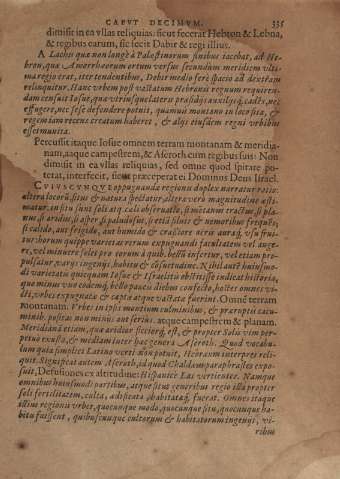 CAPVT DECIMVM. 335
dimisit in ea vllas reliquias. sicut fecerat Hebron & Lebna,
& regibus earum, sic fecit Dabir & regi illius.
A Lachis quæ non longè à Palæstinorum finibus iacebat, ad He-
bron, quæ Amorrhæorum ortum versus secundùm meridiem vlti-
ma regio erat, iter tendentibus, Dabir medio ferè spacio ad dextram
relinquitur. Hanc vrbem post vastatum Hebronis regnum requiren-
dam censuit Iosue, qua vtrinsque lateris præsidijs auxilijsq, cædes, nec
effugere, nec sese defendere potuit, quamuis montano in loco sita, &
regem iam recens creatum haberet, & alijs eiusdem regni vrbibus
esset munita.
Percussit itaque Iosue omnem terram montanam & meridia-
nam, atque campestrem, & Aseroth cum regibus suis: Non
dimisit in ea vllas reliquias, sed omne quod spirare po-
terat, interfecit, sicut præceperat ei Dominus Deus Israel.
CVIVSCVNQVE oppugnanda regionis duplex narratur ratio:
altera locorū situs & natura spectatur, altera verò magnitudine æsti-
matur. in situ sunt soli atq. cæli obseruatio, si mōtanus tractus, si pla-
nus, si aridus, si asper, si paludosus, si etiā siluis & nemoribus frequēs,
si calido, aut frigido, aut humido & crassiore aëris
torum quippe varietas rerum expugnandi facultatem vel auge-
re, vel minuere solet pro eorum à quib. bellū infertur, vel etiam pro-
pulsatur, varijs ingenijs, habitu & cōsuetudine. Nihil autē huiusmo-
di varietatis quicquam Iosue & Israëlitis obstitisse indicat historia,
quo minus vno eodemq, bello paucis diebus confecto, hostes omnes vi-
cti, vrbes expugnata & capta atque vastata fuerint. Omnē terram
montanam. Vrbes in ipsis montium culminibus, & præruptis cacu-
minib. positas non minùs aut seriùs. atque campestrem & planam.
Meridianā etiam, quæ aridior sicciorq, est, & propter Solis vim per-
petuò exusta, & mediam inter hæc genera Aseroth. Quod vocabu-
lum quia simplici Latino verti nō potuit, Hebræum interpres reli-
quit. Significat autem Aseroth, id quod Chaldæam paraphrases expo-
suit, Defusiones ex altitudine: Hispanicè Las vertientes. Namque
omnibus huiusmodi partibus, atque situs generibus regio illa propter
soli fertilitatem, culta, ædificata, habitataq, fuerat. Omnes itaque
illius regionis vrbes, quocunque modo, quocunque situ, quocunque ha-
bitu fuissent, quibuscunque cultorum & habitatorum ingenijs, vi-
ribus